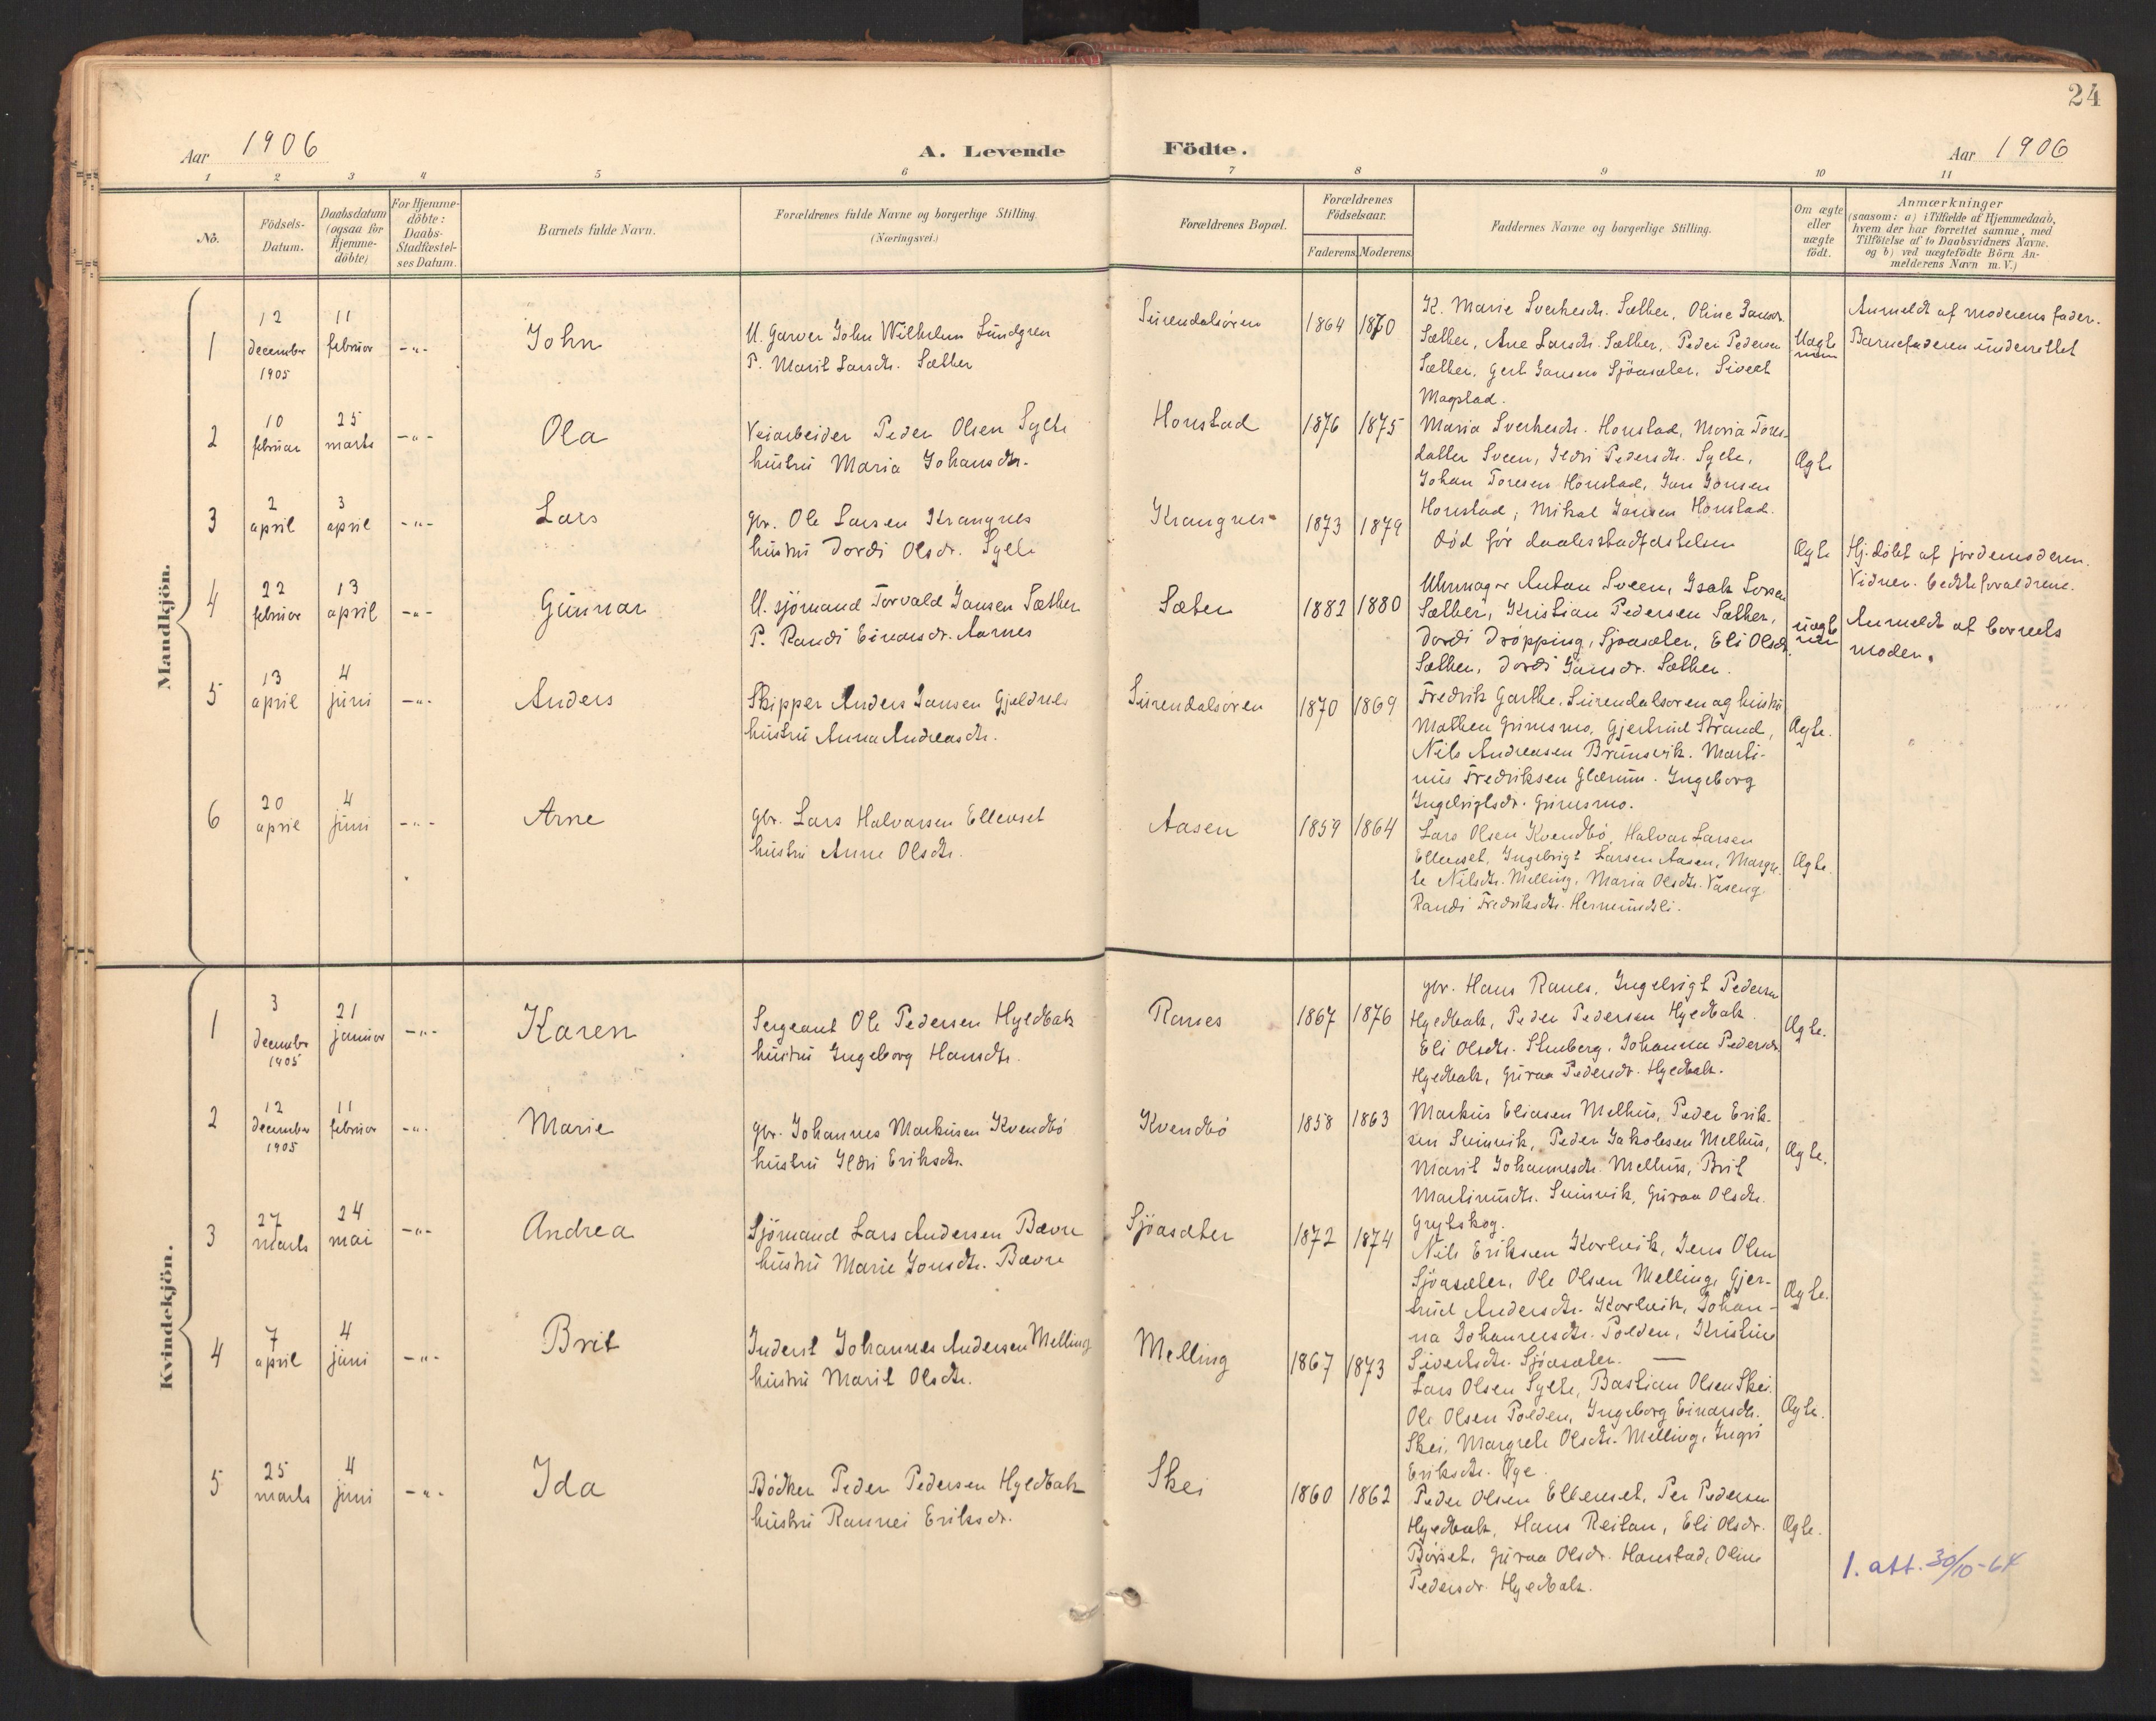 24
Aar 1906
A. Levende Födte.
Aar 1906
1 2 3 4 5 6 7 8 9 10 11
No.
Födsels-
Datum.
Daabsdatum
(ogsaa for
Hjemme-
döbte)
For Hjemme-
döbte:
Daabs-
Stadfæstel-
ses Datum.
Barnets fulde Navn.
Forældrenes fulde Navne og borgerlige Stilling.
(Næringsvei.)
Forældrenes Bopæl.
Forældrenes
Födselsaar.
Faderens. Moderens.
Faddernes Navne og borgerlige Stilling.
Om ægte
eller
uægte
födt.
Anmærkninger
(saasom: a) i Tilfælde af Hjemmedaab,
hvem der har forrettet samme, med
Tilföielse af to Daabsvidners Navne,
og b) ved uægtefödte Börn An-
melderens Navn m. V.)
Mandkjön.
1
12
december
1905
11
februar
-"-
John
U. Garver John Wilhelm Lundgren
P. Marit Larsdtr. Sæther
Surendalsören
1864 1870
K. Marie Sverkesdtr. Sæther, Oline Jansdr.
Sæther, Ane Larsdtr. Sæther, Peder Pedersen
Sæther, Gert Jansen Sjöasæter, Sivert
Magstad.
Uægte
Anmeldt af moderens fader.
Barnefaderen underrettet
2
10
februar
25
marts
-"-
Ola
Veiarbeider Peder Olsen Sylte
hustru Maria Johansdtr.
Honstad
1876 1875
Maria Sverkesdtr. Honstad, Maria Tores-
datter Sveen, Ildri Pedersdtr. Sylte,
Johan Toresen Honstad, Jon Jonsen
Honstad, Mikal Jansen Honstad.
Ægte
3
2
april
3
april
-"-
Lars
gbr. Ole Larsen Krangnes
hustru Dordi Olsdr. Sylte
Krangnes
1873 1879
Död för daabsstadfæstelsen
Ægte
Hj. döbt af jordemoderen.
Vidner. bedsteforældrene.
4
22
februar
13
april
-"-
Gunnar
U. sjömand Torvald Jansen Sæther
P. Randi Einarsdr. Aarnes
Sæter
1882 1880
Uhrmager Anton Sveen, Isak Larsen
Sæther, Kristian Pedersen Sæther,
Dordi Dröpping, Sjöasæter, Eli Olsdr.
Sæther, Dordi Jansdr. Sæther.
uægte
Anmeldt af barnets
moder.
5
13
april
4
juni
-"-
Anders
Skipper Anders Jansen Gjeldnes
hustru Anna Andreasdtr.
Surendalsören
1870 1869
Fredrik Garthe, Surendalsören og hustru
Mathea Grimsmo, Gjertrud Strand,
Nils Andreasen Brunsvik. Marti-
nus Fredriksen Glærum. Ingeborg
Ingebrigtsdr. Grimsmo.
Ægte.
6
20
april
4
juni
-"-
Arne
gbr. Lars Halvarsen Ellevset
hustru Anne Olsdtr.
Aasen
1859 1864
Lars Olsen Kvendbö, Halvar Larsen
Ellevset, Ingebrigt Larsen Aasen, Margre-
te Nilsdtr. Melling, Maria Olsdtr. Vaseng
Randi Fredriksdtr. Hermundsli.
Ægte.
Kvindekjön.
1
3
december
1905
21
januar
-"-
Karen
Sergeant Ole Pedersen Hyldbak
hustru Ingeborg Hansdtr.
Ranes
1867 1876
gbr. Hans Ranes, Ingebrigt Pedersen
Hyldbak, Peder Pedersen Hyldbak.
Eli Olsdtr. Stenberg, Johanna Pedersdr.
Hyldbak, Guraa Pedersdr. Hyldbak.
Ægte.
2
12
december
1905
11
februar
-"-
Marie
gbr. Johannes Markusen Kvendbö
hustru Ildri Eriksdtr.
Kvendbö
1858 1863
Markus Eliasen Melhus, Peder Erik-
sen Svinvik, Peder Jakobsen Melhus,
Marit Johannesdtr. Melhus, Brit
Martinusdtr. Svinvik, Guraa Olsdtr.
Grytskog.
Ægte.
3
27
marts
24
mai
-"-
Andrea
Sjömand Lars Andersen Bævre
hustru Marie Jonsdtr. Bævre
Sjöasæter
1872 1874
Nils Eriksen Korlvik, Jens Olsen
Sjöasæter, Ole Olsen Melling, Gjer-
trud Andersdtr. Korlvik, Johan-
na Johannesdtr. Polden, Kristine
Sivertsdtr. Sjöasæter. —
Ægte.
4
7
april
4
juni
-"-
Brit
Inderst Johannes Andersen Melling
hustru Marit Olsdtr.
Melling
1867 1873
Lars Olsen Sylte, Bastian Olsen Skei.
Ole Olsen Polden, Ingeborg Einarsdtr.
Skei, Margrete Olsdtr. Melling, Ingri
Eriksdtr. Øye.
Ægte.
5
25
marts
4
juni
-"-
Ida
Bödker Peder Pedersen Hyldbak
hustru Rannei Eriksdr.
Skei
1860 1862
Peder Olsen Ellevset, Per Pedersen
Hyldbak, Hans Reitan, Eli Olsdr.
Börset, Guraa Olsdr. Honstad, Oline
Pedersdr. Hyldbak.
Ægte.
1. att. 30/10-64